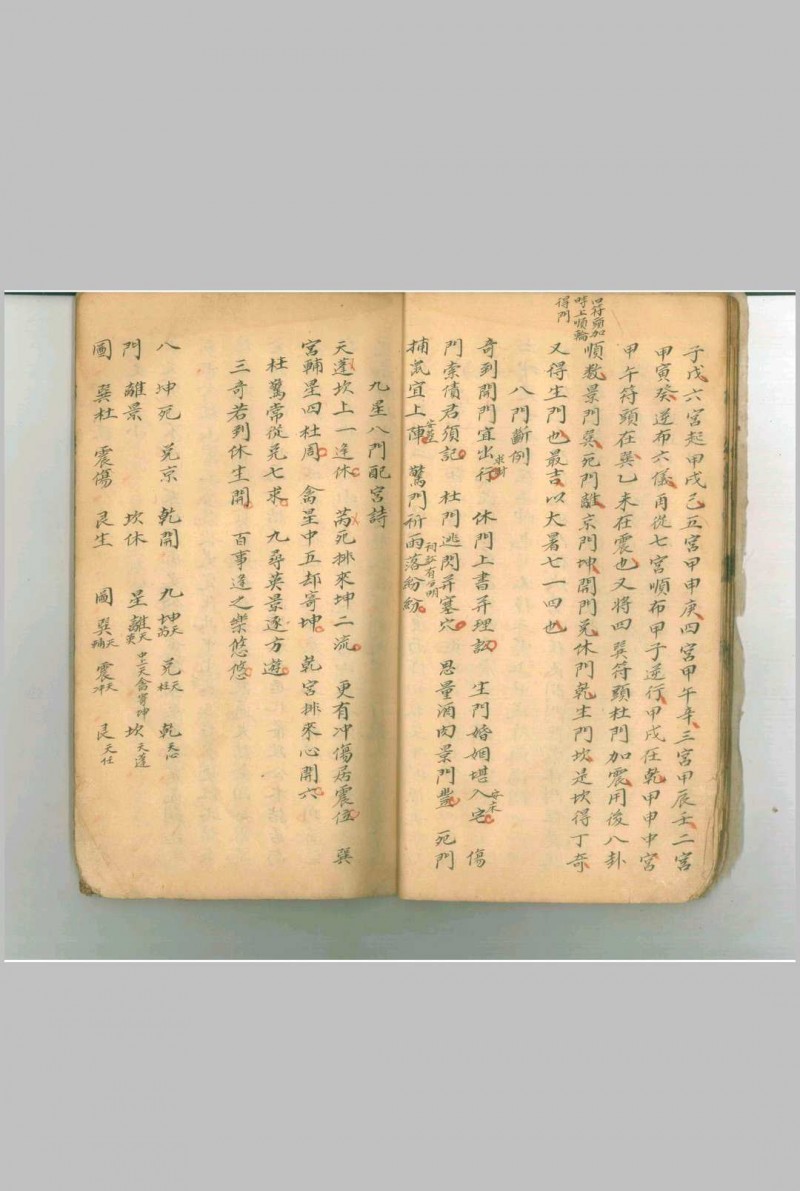 子戊六宮起甲戌己五宮甲申庚四宮甲午辛三宮甲辰壬二宮
甲寅癸逆布六儀再從七宮順布甲子逆行甲戌在乾甲申中宮
甲午符頭在巽乙未在震也又將四巽符頭杜門加震用後八卦
順数景門巽死門離京門坤開門兌休門乾生門坎是坎得丁奇
時上順輪
得門
又得生門也最吉以大暑七一四也
八門斷例
奇到開門宜出行
求財
休門上書并理
生門婚姻堪入宅
傷
門索債君須記
杜門逃閃并塞穴
思量酒肉景門豊
死門
捕貳宜上陣
驚門祈雨落紛紛
九星八門配宮詩
天蓬坎上一逢休
芮死排來坤二流
更有冲傷居震位
巽
宮輔星四杜周
禽星中五却寄坤
乾宮排來心開六
柱驚常從兌七求
九尋英景逐方遊
三奇若到休生開
百事逢之樂悠悠
八 坤死 兌京 乾開 九 坤天芮 兌天柱 乾天心
門 離景 坎休 星 離天英 中五天禽寄坤 坎天蓬
圖 巽杜 震傷 艮生 圖 巽天輔 震天冲 艮天任